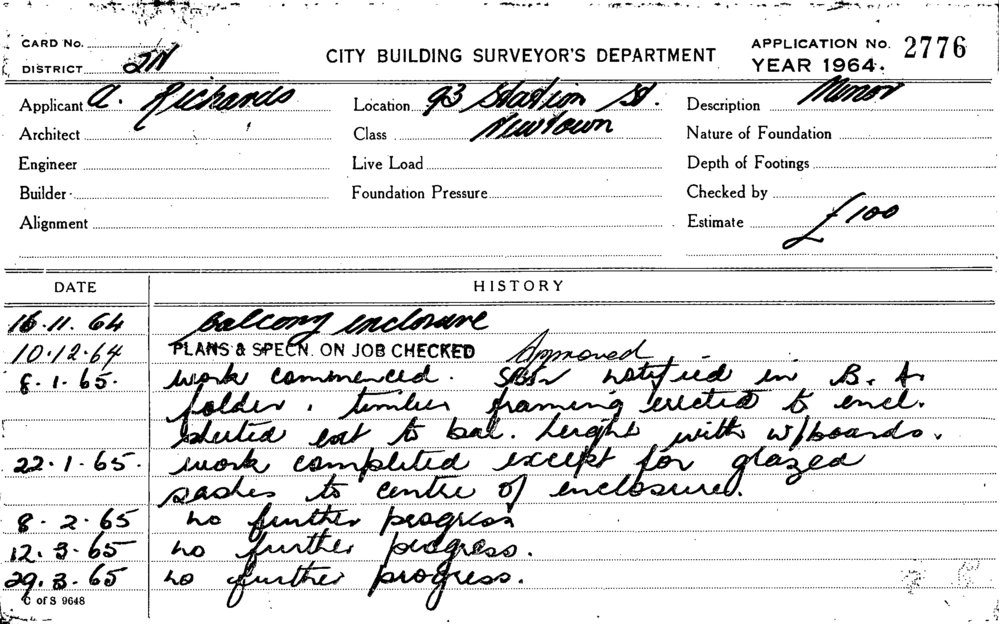 CARD No.
DISTRICT 2N
CITY BUILDING SURVEYOR'S DEPARTMENT
APPLICATION No. 2776
YEAR 1964.
Applicant A. Richards
Location 93 Station St.
Description Minor
Architect
Class Newtown
Nature of Foundation
Engineer
Live Load
Depth of Footings
Builder
Foundation Pressure
Checked by
Alignment
Estimate £100
DATE HISTORY
16.11.64 Balcony enclosure
10.12.64 PLANS & SPECN. ON JOB CHECKED Approved
8.1.65. work commenced. notified in B.A.
folder. timber framing erected to encl.
sheeted ext to bal. height with w/boards.
22.1.65. work completed except for glazed
sashes to centre of enclosure.
8.2.65 no further progress
12.3.65 no further progress.
29.3.65 no further progress.
C of S 9648